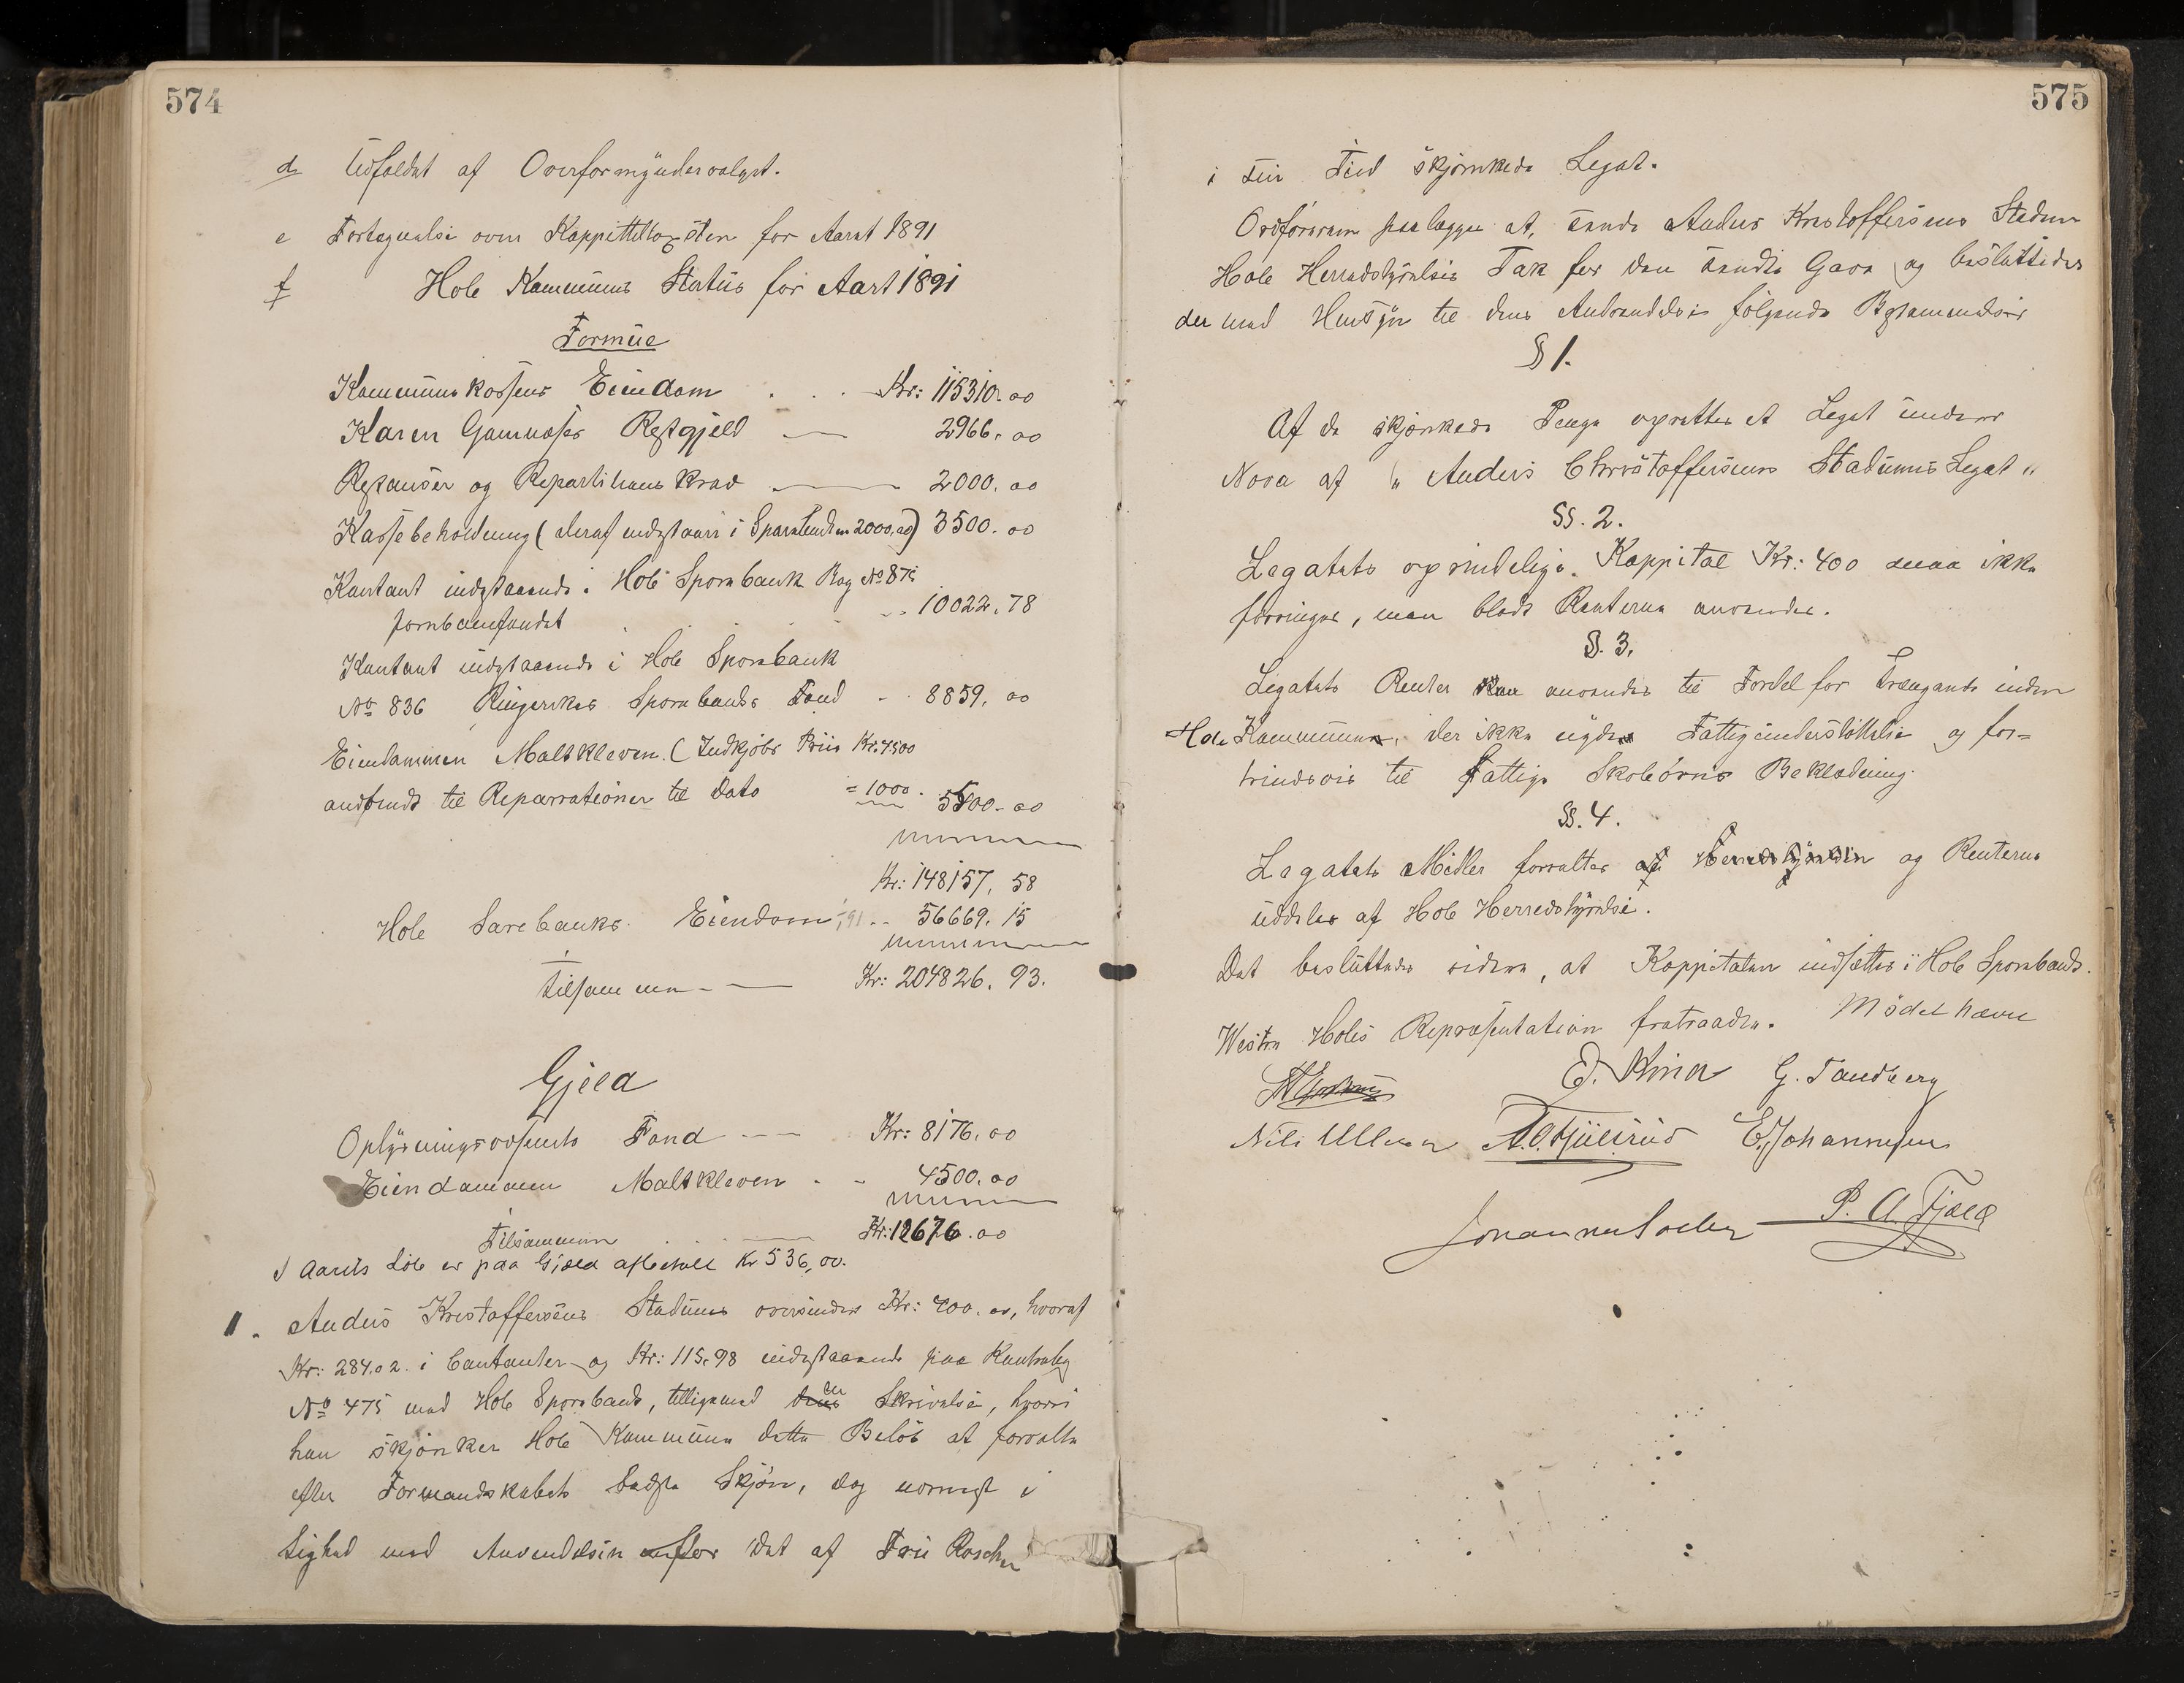 574
d Udfaldet af Overformyndervalget.
e Fortegnelse over Kappitteltaxsten for Aaret 1891
f Hole Kommunes Status for Aaret 1891
Formue
Kommunekassens Eiendom . . . Kr: 115310.00
Karen Gamnæses Restgjeld — 2966.00
Restanser og Repartitions Krav — 2000.00
Kassebeholdning (deraf indestaar i Sparebanken 2000,00) 3500.00
Kontant indestaaende i Hole Sparebank Bog No 875
Jernbanefondet . . . 10022.78
Kontant indestaaende i Hole Sparebank
No 836 Ringerikes Sparebanks Fond - 8859.00
Eiendommen Maltkleven. (Indkjøbs Priis Kr. 4500
anvendt til Reparrationer til Dato = 1000. 5500.00
Kr: 148157.58
Hole Sarebanks Eiendom 91 .. 56669.15
tilsammen - — Kr: 204826.93.
Gjeld
Oplysningsvæsenets Fond --- Kr: 8176.00
Eiendommen Maltkleven - - 4500.00
Tilsammen . . — Kr: 12676.00
I Aarets Løb er paa Gjæld afbetalt Kr 536,00.
1. Anders Kristoffersens Stadum oversender Kr: 400.00, hvoraf
Kr: 284.02. i Contanter og Kr: 115.98 indestaaende paa Kontrabog
No 475 med Hole Sparebank, tilligemed en Skrivelse, hvori
han skjænker Hole Kommune dette Beløb at forvalte
efter Formandskabets bedste Skjøn, dog nærmest i
Lighed med Anvendelsen af det af Fru Roscher
575
i sin Tid skjænkede Legat.
Ordføreren paalægges at sende Anders Kristoffersens Stadum
Hole Herredstyrelses Tak for den sendte Gave og besluttedes
der med Hensyn til dens Anvendelse følgende Bestemmelser
§ 1.
Af de skjænkede Penge oprettes et Legat under
Navn af "Anders Christoffersens Stadums Legat"
§§. 2.
Legatets oprindelige Kappital Kr: 400 maa ikke
forringes, men blodt Renterne anvendes.
§. 3.
Legatets Renter anvendes til Fordel for Trængende inden
Hole Kommune, der ikke nyder Fattigunderstøttelse og for=
trindsvis til fattige Skolebørns Beklædning.
§§. 4.
Legatets Midler forvaltes af Herredstyrelsen og Renterne
uddeles af Hole Herredstyrelse.
Det besluttedes videre, at Kappitalen indsættes i Hole Sparebank.
Westre Holes Repræsentation fratraadte. Mødet hævet
G. Tandberg
Nils Ullern A.O. Hjülsrud E. Johannesen
P. A. Fjæld